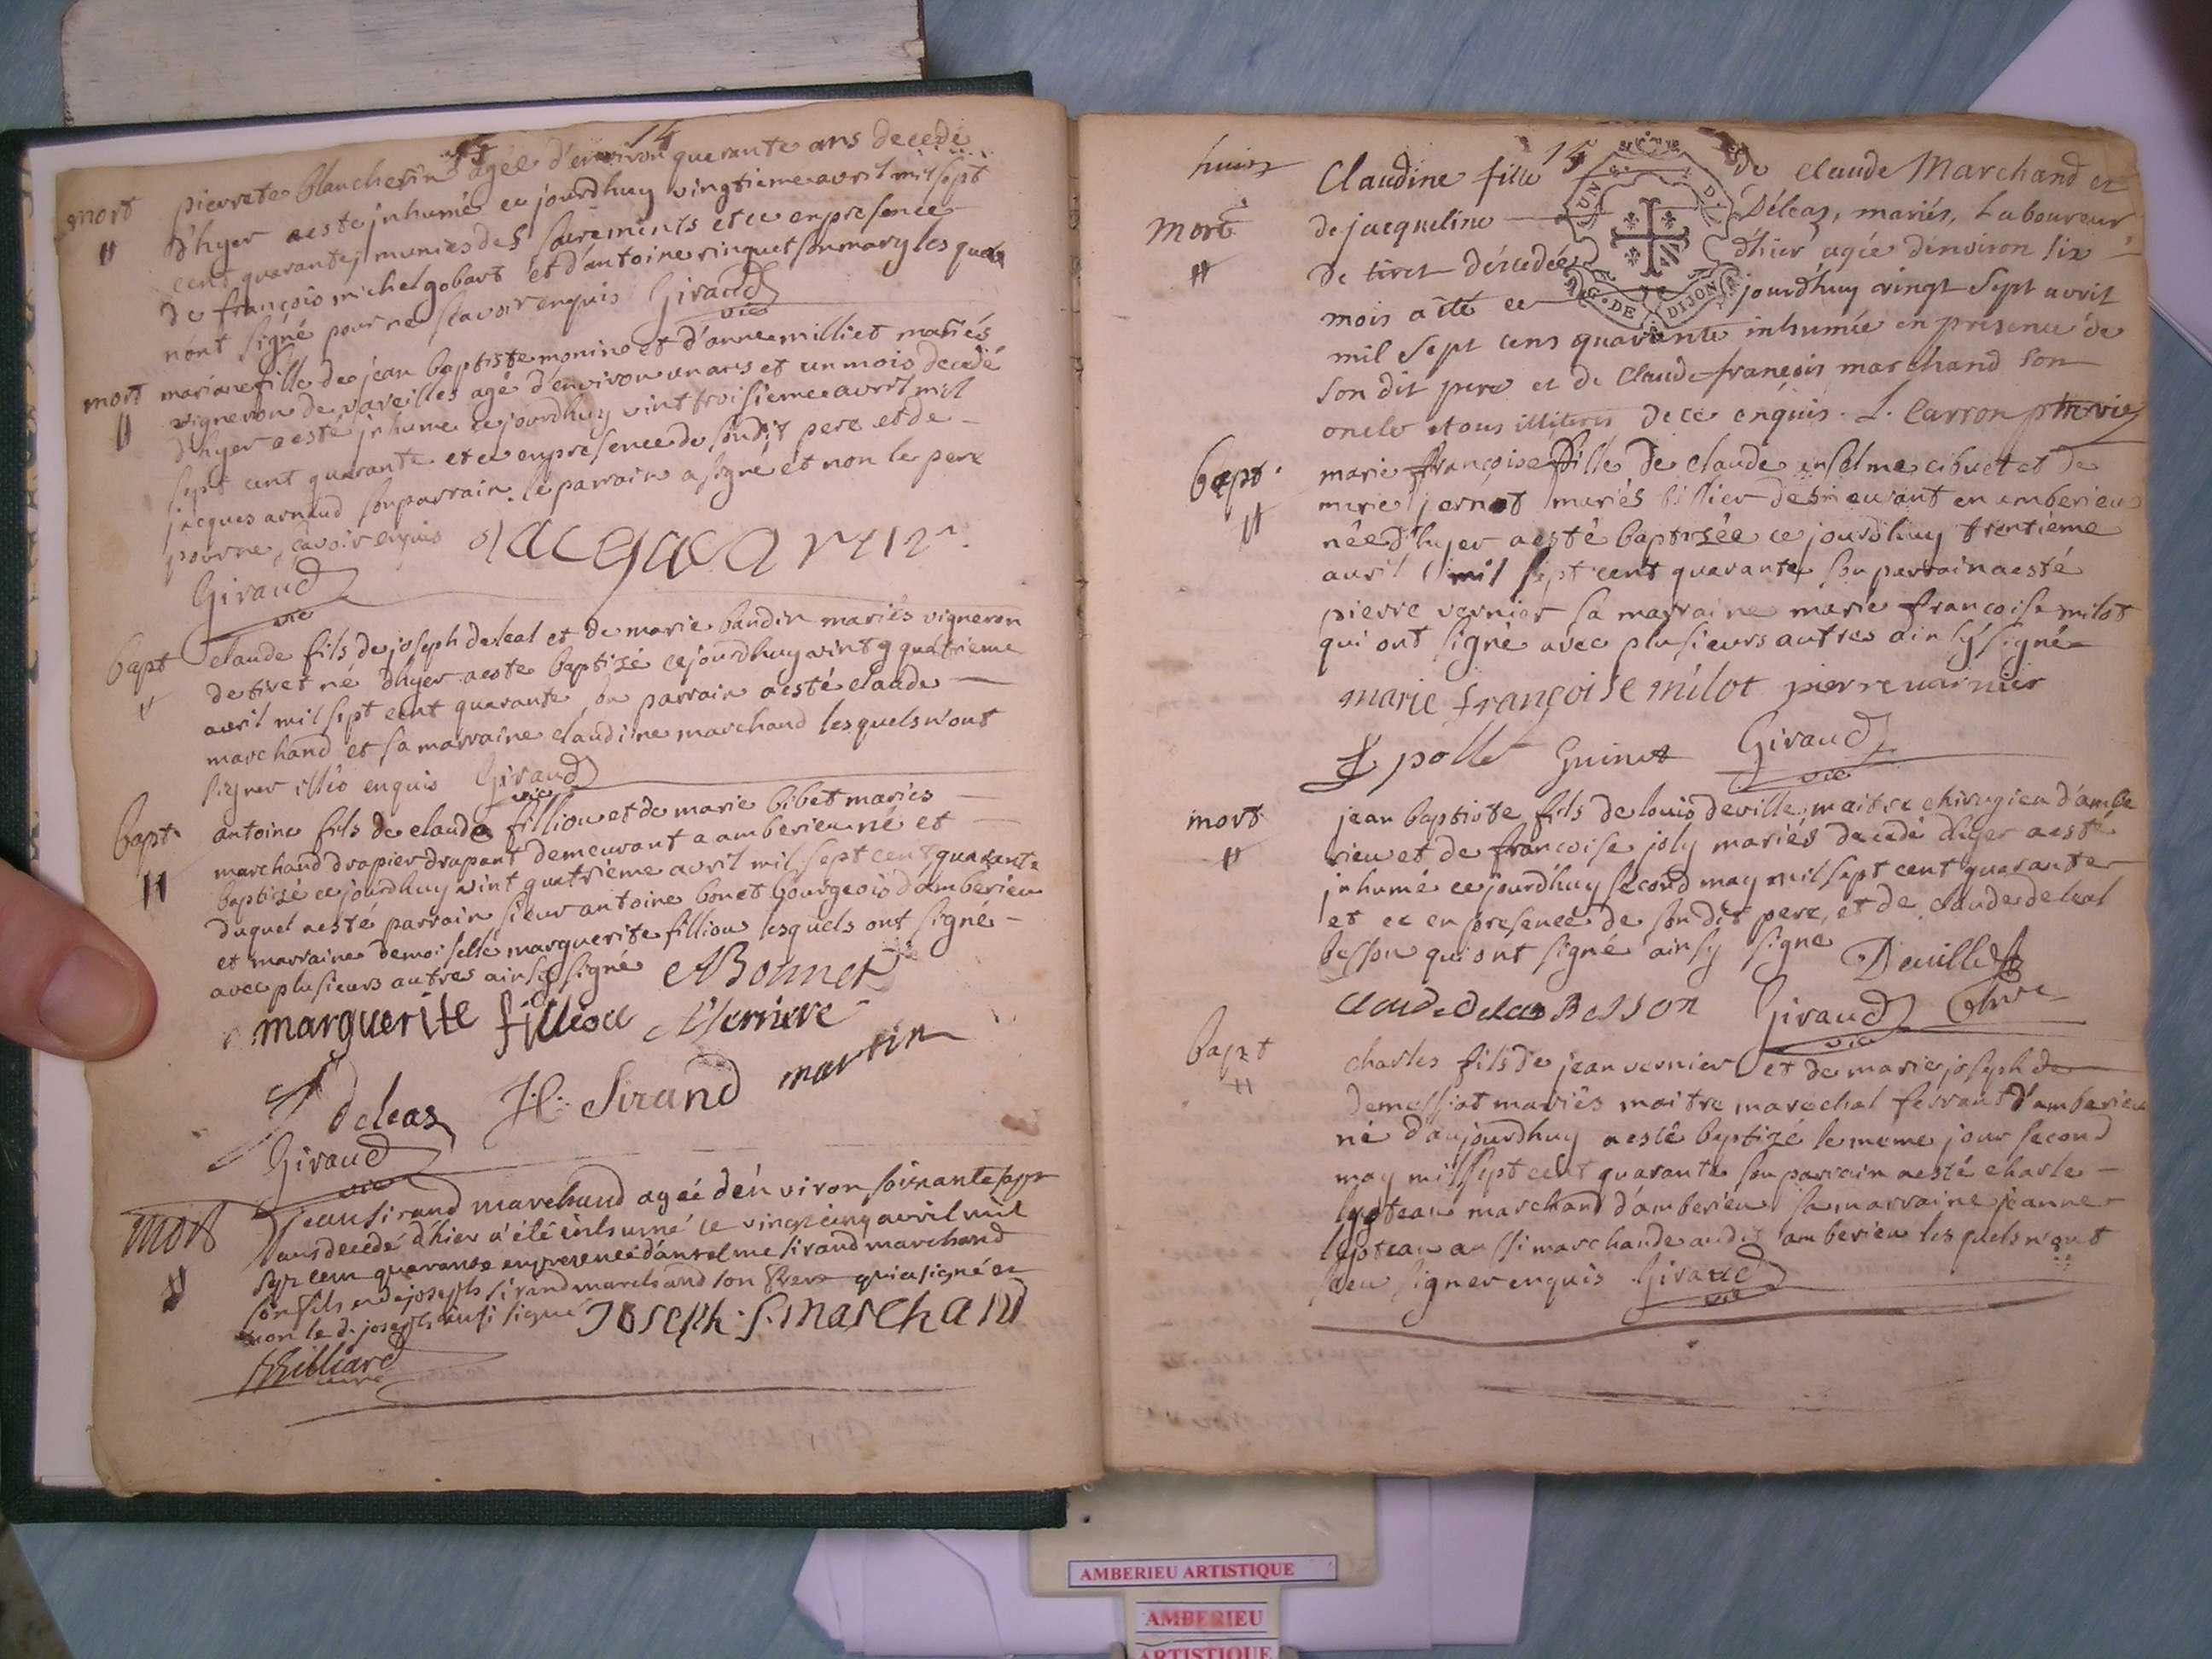 14
mort pierrete blancherin agée d'environ quarante ans decedé
d'hyer a esté inhumé ce jourdhuy vingtieme avril mil sept
cent quarante, munies des sacrements et ce en presence
de françois michel gobart et d'antoine ringuet son mary les quels
n'ont signé pour ne scavoir enquis Giraud
vic
mort mariane fille de jean baptiste monin et d'anne milliet mariés
vigneron de vareilles agé d'environ un ans et un mois decedé
d'hyer a esté inhumé ce jourdhuy vint troisieme avril mil
sept cent quarante et ce en presence de son dit pere et de
jacques arnaud son parrain. le parrain a signé et non le pere
pour ne scavoir enquis
Giraud
vic
bapt claude fils de joseph deleat et de marie baudin mariés vigneron
de tiret né d'hyer a esté baptizé ce jourdhuy vint quatrieme
avril mil sept cent quarante, son parrain a esté claude
marchand et sa marraine claudine marchand lesquels n'ont
signer illés enquis Giraud
vic
bapt antoine fils de claude filliou et de marie bibet mariés
marchand drapier drapant demeurant a amberieu né et
baptizé ce jourdhuy vint quatrième avril mil sept cent quarante
duquel a esté parrain sieur antoine bonet bourgeois d'amberieu
et marraine demoiselle marguerite filliou lesquels ont signé
avec plusieurs autres ainsy signé ABonnet
marguerite filliou
deleas H. Sirand martin
Giraud
vic
mort Jean sirand marchand ageé d'én viron soixante sept
ans decedé d'hier a été inhumé ce vingt cinq avril mil
sept cent quarante en presence d'anselme sirand marchand
son fils et de joseph sirand marchand son frere qui a signé et
non le d. joseph ainsi signé Joseph. S. marchand
curé
15
huict
mort Claudine fille de claude Marchand et
de jacqueline Déleaz, mariés, Laboureur
de tiret décedée d'hier agée d'environ six
mois a été ce jourd'huy vingt Sept avril
mil sept cens quarante inhumée en presence de
son dit pere et de Claude françois marchand son
oncle tous illiterés de ce enquis. L. Carron
UN S. D.
G. DE DIJON
bapt. marie françoise fille de claude anselme cibuet et de
marie jernot mariés demeurant en amberieu
née d'hyer a esté baptizée ce jourdhuy trentième
avril mil sept cent quarante son parrain a esté
pierre vernier sa marraine marie françoise milot
qui ont signé avec plusieurs autres ainsy signé
marie françoise milot pierre varnier
polle Guinet Giraud
vic
mort jean baptiste fils de louis deville maitre chirugien d'ambe
rieu et de françoise joly mariés decedé d'hyer a esté
inhumé ce jourdhuy second may mil sept cent quarante
et ce en presence de son dit pere, et de claude deleat
besson qui ont signé ainsy signe Deuille
Besson Giraud
vic
bapt charles fils de jean vernier et de marie joseph de
demessiat mariés maitre marechal ferrant d'amberieu
né d'aujourdhuy a esté baptizé le même jour second
may mil sept cent quarante son parrain a esté charle
lyoteau marchand d'amberieu sa marraine jeanne
lyoteau aussi marchande audit amberieu lesquels n'ont
sceu signer enquis Giraud
vic
AMBERIEU ARTISTIQUE
AMBERIEU
ARTISTIQUE